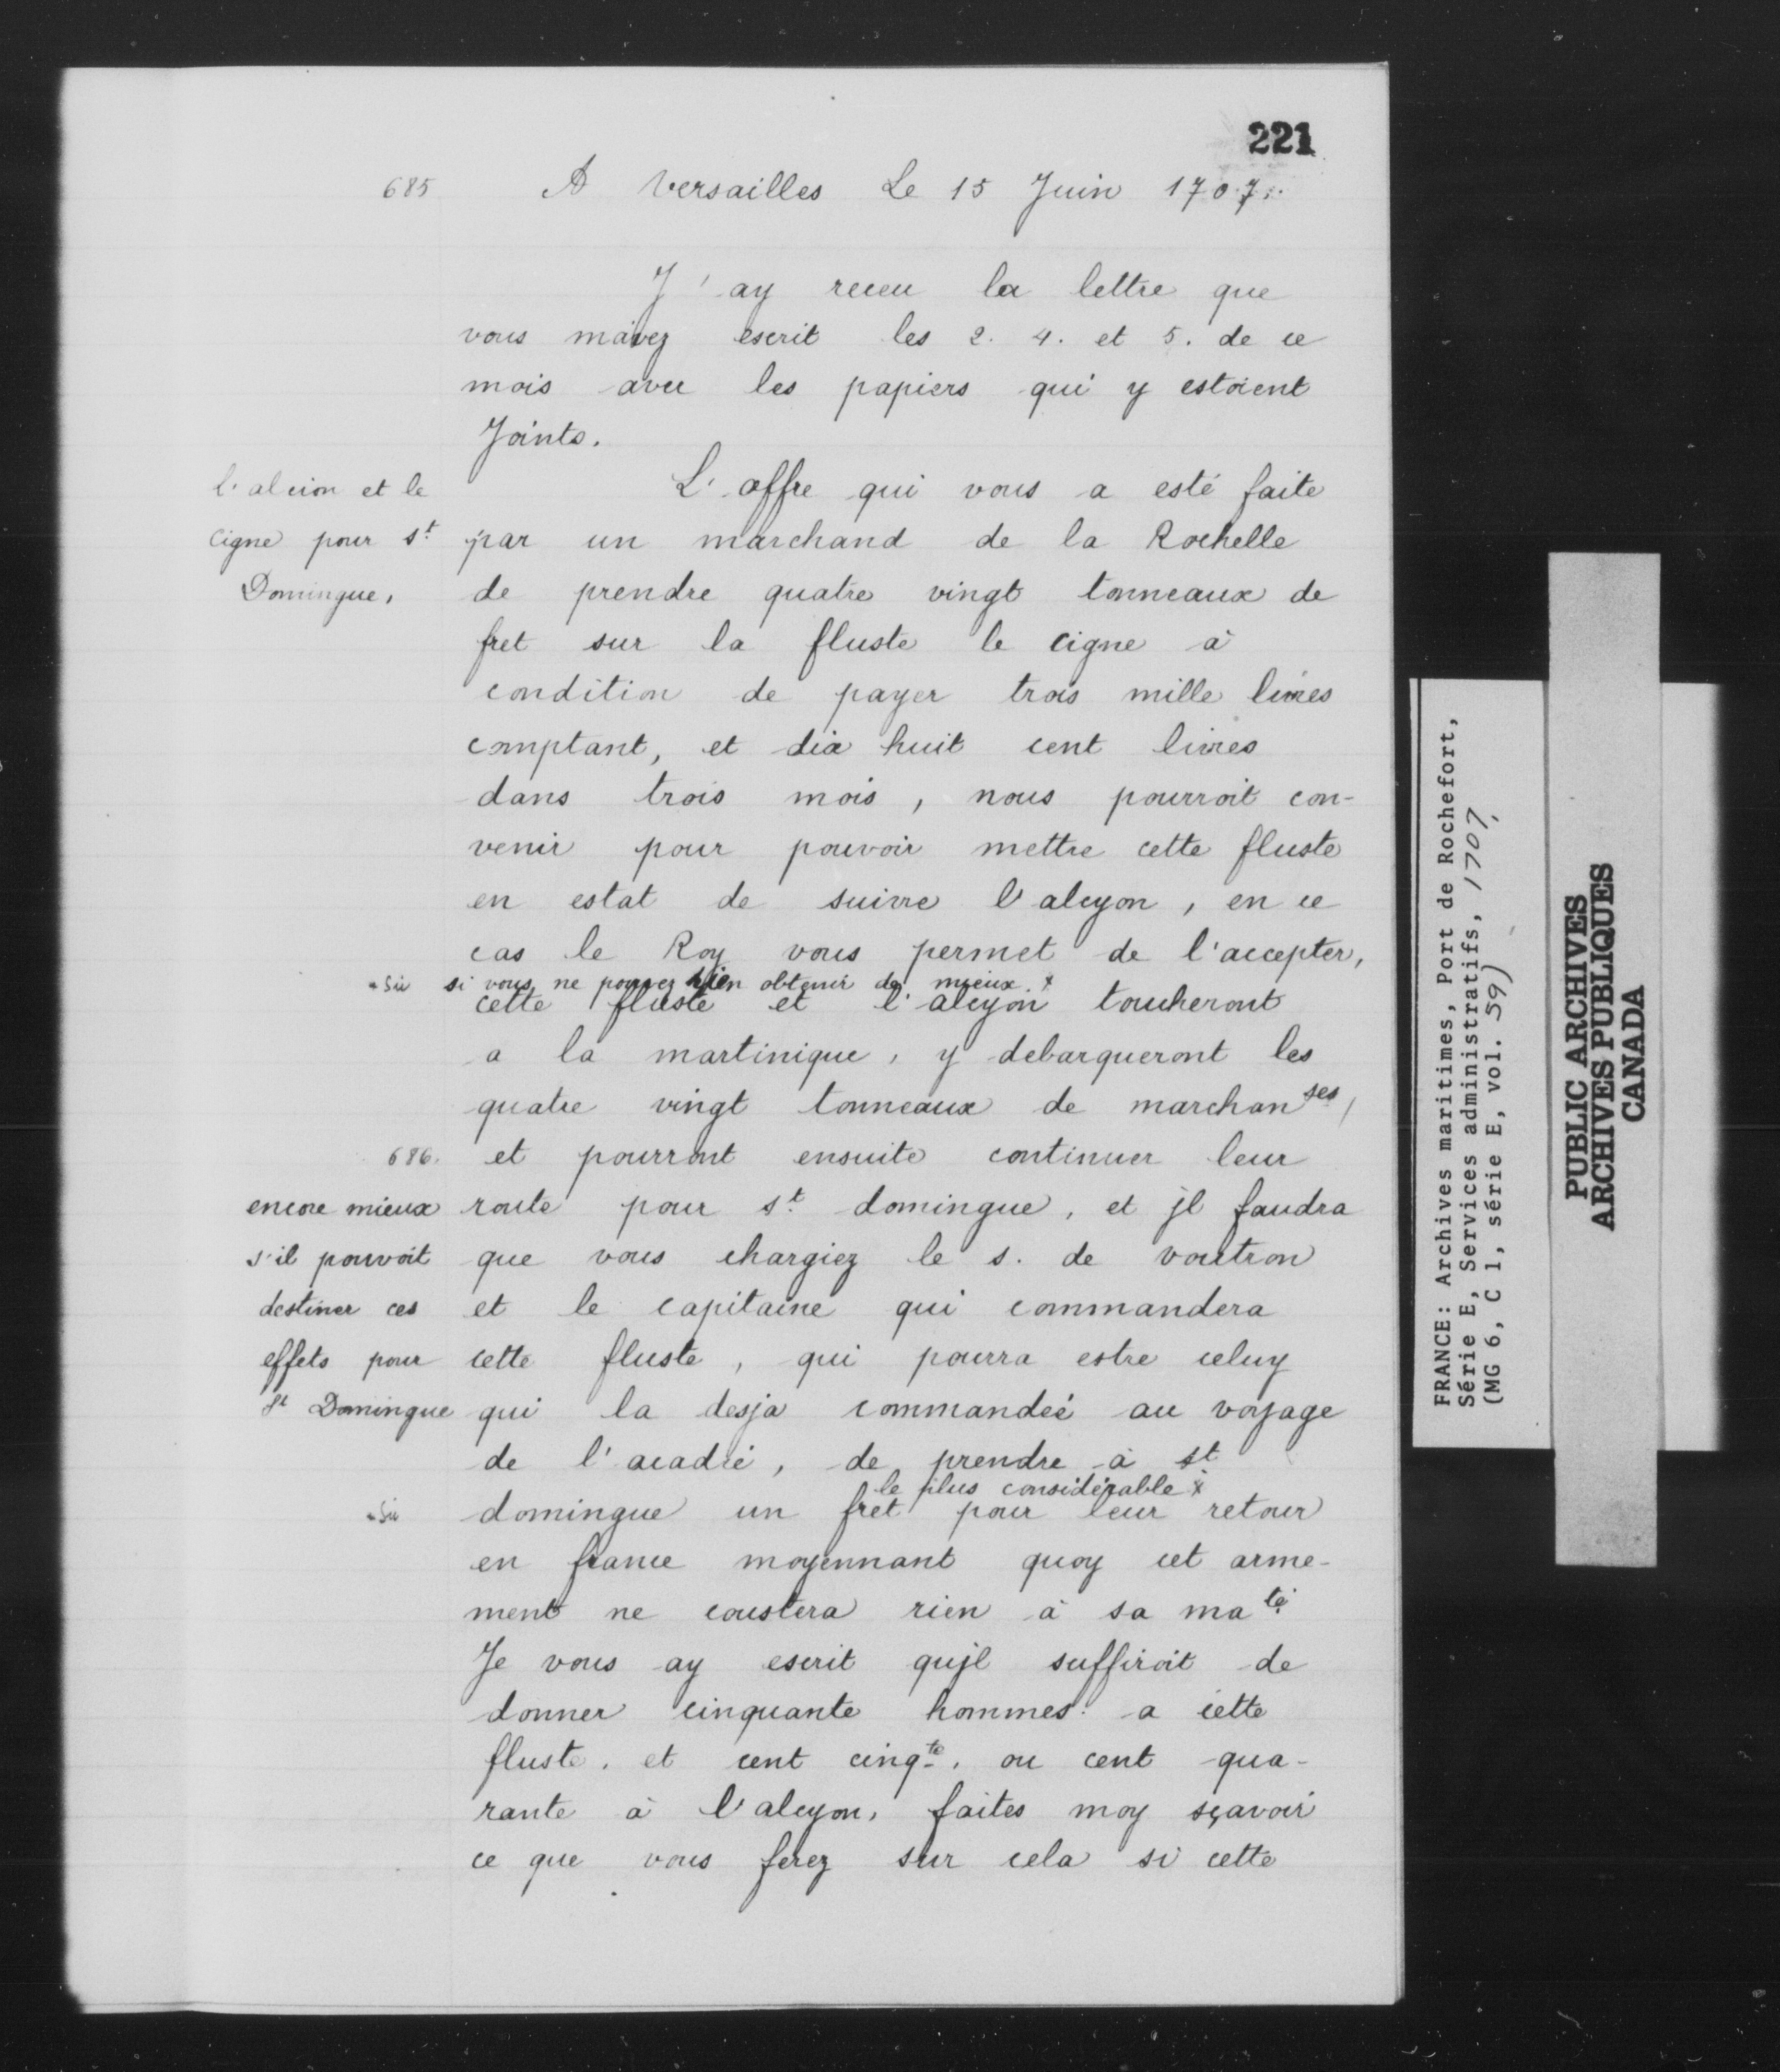 221
685 A Versailles Le 15 Juin 1707.
J'ay receu la lettre que
vous m'avez escrit les 2. 4. et 5. de ce
mois avec les papiers qui y estoient
Joints.
l'alcion et le
cigne pour st.
Domingue,
L'offre qui vous a esté faite
par un marchand de la Rochelle
de prendre quatre vingt tonneaux de
fret sur la fluste le cigne à
condition de payer trois mille livres
comptant, et dix huit cent livres
dans trois mois, nous pourroit con-
venir pour pouvoir mettre cette fluste
en estat de suivre l'alcyon, en ce
cas le Roy vous permet de l'accepter,
* Sic si vous ne pouvez rien obtenir de mieux. x
cette fluste et l'alcyon toucheront
a la martinique, y debarqueront les
quatre vingt tonneaux de marchanses,
686. et pourront ensuite continuer leur
encore mieux
s'il pouvoit
destiner ces
effets pour
St Domingue
route pour st. domingue, et jl faudra
que vous chargiez le s. de voutron
et le capitaine qui commandera
cette fluste, qui pourra estre celuy
qui la desja commandeé au voyage
de l'acadie, de prendre à st
le plus considérable x
* Sic domingue un fret pour leur retour
en france moyennant quoy cet arme-
ment ne coustera rien à sa maté.
Je vous ay escrit qujl suffiroit de
donner cinquante hommes a cette
fluste. et cent cinqte. ou cent qua-
rante à l'alcyon, faites moy sçavoir
ce que vous ferez sur cela si cette
FRANCE: Archives maritimes, Port de Rochefort,
Série E, Services administratifs, 1707,
(MG 6, C 1, série E, vol. 59)
PUBLIC ARCHIVES
ARCHIVES PUBLIQUES
CANADA